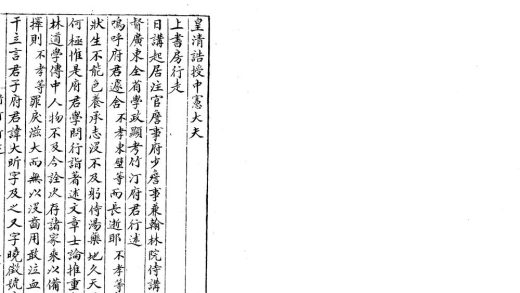 皇清誥授中憲大夫
上書房行走
日講起居注官詹事府少詹事兼翰林院侍講
督廣東全省學政顯考竹汀府君行述
嗚呼府君遽舍不孝東壁等而長逝耶不孝等
狀生不能色養承志沒不及躬侍湯藥地久天
何極惟是府君學問行誼著述文章士論推重
林道學傳中人物不及今詮次存諸家乘以備
擇則不孝等罪戾滋大而無以沒齒用敢泣血
于立言君子府君諱大昕字及之又字曉徵號